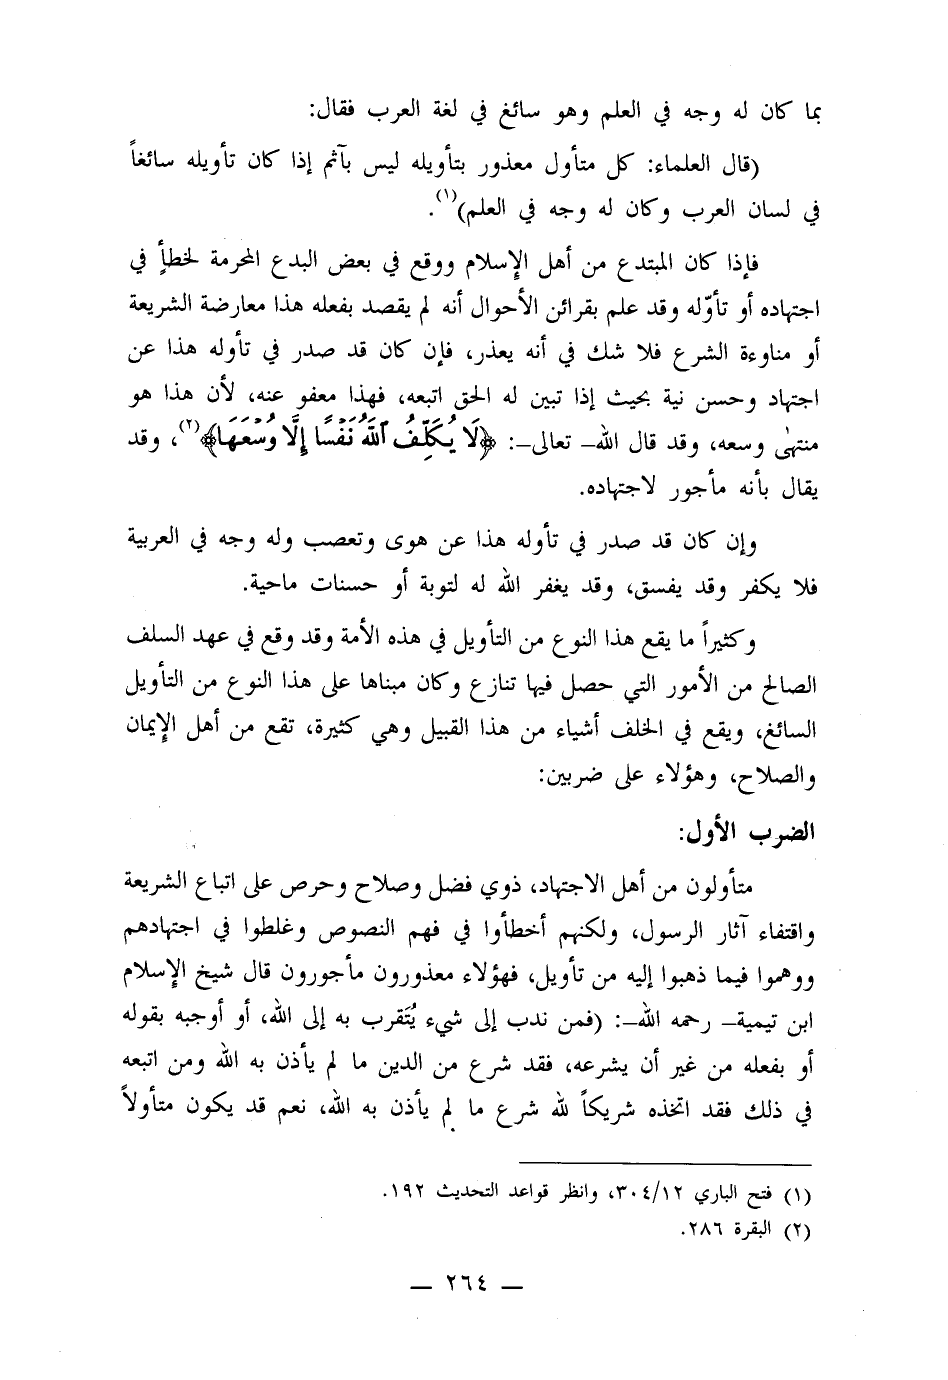 بما كان له وجه في العلم وهو سائغ في لغة العرب فقال:
(قال العلماء: كل متأول معذور بتأويله ليس بآثم إذا كان تأويله سائغاً
في لسان العرب وكان له وجه في العلم)(١).
فإذا كان المبتدع من أهل الإسلام ووقع في بعض البدع المحرمة لخطأٍ في
اجتهاده أو تأوّله وقد علم بقرائن الأحوال أنه لم يقصد بفعله هذا معارضة الشريعة
أو مناوءة الشرع فلا شك في أنه يعذر، فإن كان قد صدر في تأوله هذا عن
اجتهاد وحسن نية بحيث إذا تبين له الحق اتبعه، فهذا معفو عنه، لأن هذا هو
منتهى وسعه، وقد قال الله - تعالى -: ﴿لَا يُكَلِّفُ ٱللَّهُ نَفْسًا إِلَّا وُسْعَهَا﴾(٢)، وقد
يقال بأنه مأجور لاجتهاده.
وإن كان قد صدر في تأوله هذا عن هوى وتعصب وله وجه في العربية
فلا يكفر وقد يفسق، وقد يغفر الله له لتوبة أو حسنات ماحية.
وكثيراً ما يقع هذا النوع من التأويل في هذه الأمة وقد وقع في عهد السلف
الصالح من الأمور التي حصل فيها تنازع وكان مبناها على هذا النوع من التأويل
السائغ، ويقع في الخلف أشياء من هذا القبيل وهي كثيرة، تقع من أهل الإيمان
والصلاح، وهؤلاء على ضربين:
الضرب الأول:
متأولون من أهل الاجتهاد، ذوي فضل وصلاح وحرص على اتباع الشريعة
واقتفاء آثار الرسول، ولكنهم أخطأوا في فهم النصوص وغلطوا في اجتهادهم
ووهموا فيما ذهبوا إليه من تأويل، فهؤلاء معذورون مأجورون قال شيخ الإسلام
ابن تيمية - رحمه الله -: (فمن ندب إلى شيء يُتَقرب به إلى الله، أو أوجبه بقوله
أو بفعله من غير أن يشرعه، فقد شرع من الدين ما لم يأذن به الله ومن اتبعه
في ذلك فقد اتخذه شريكاً لله شرع ما لم يأذن به الله، نعم قد يكون متأولاً
(١) فتح الباري ٣٠٤/١٢، وانظر قواعد التحديث ١٩٢.
(٢) البقرة ٢٨٦.
— ٢٦٤ —